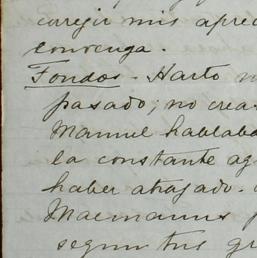 corregir mis apre
convenga.
Fondos - Harto
pasado; no creas
Manuel hablaba
la constante ag
haber atajado.
Macmanus
segun tus gr